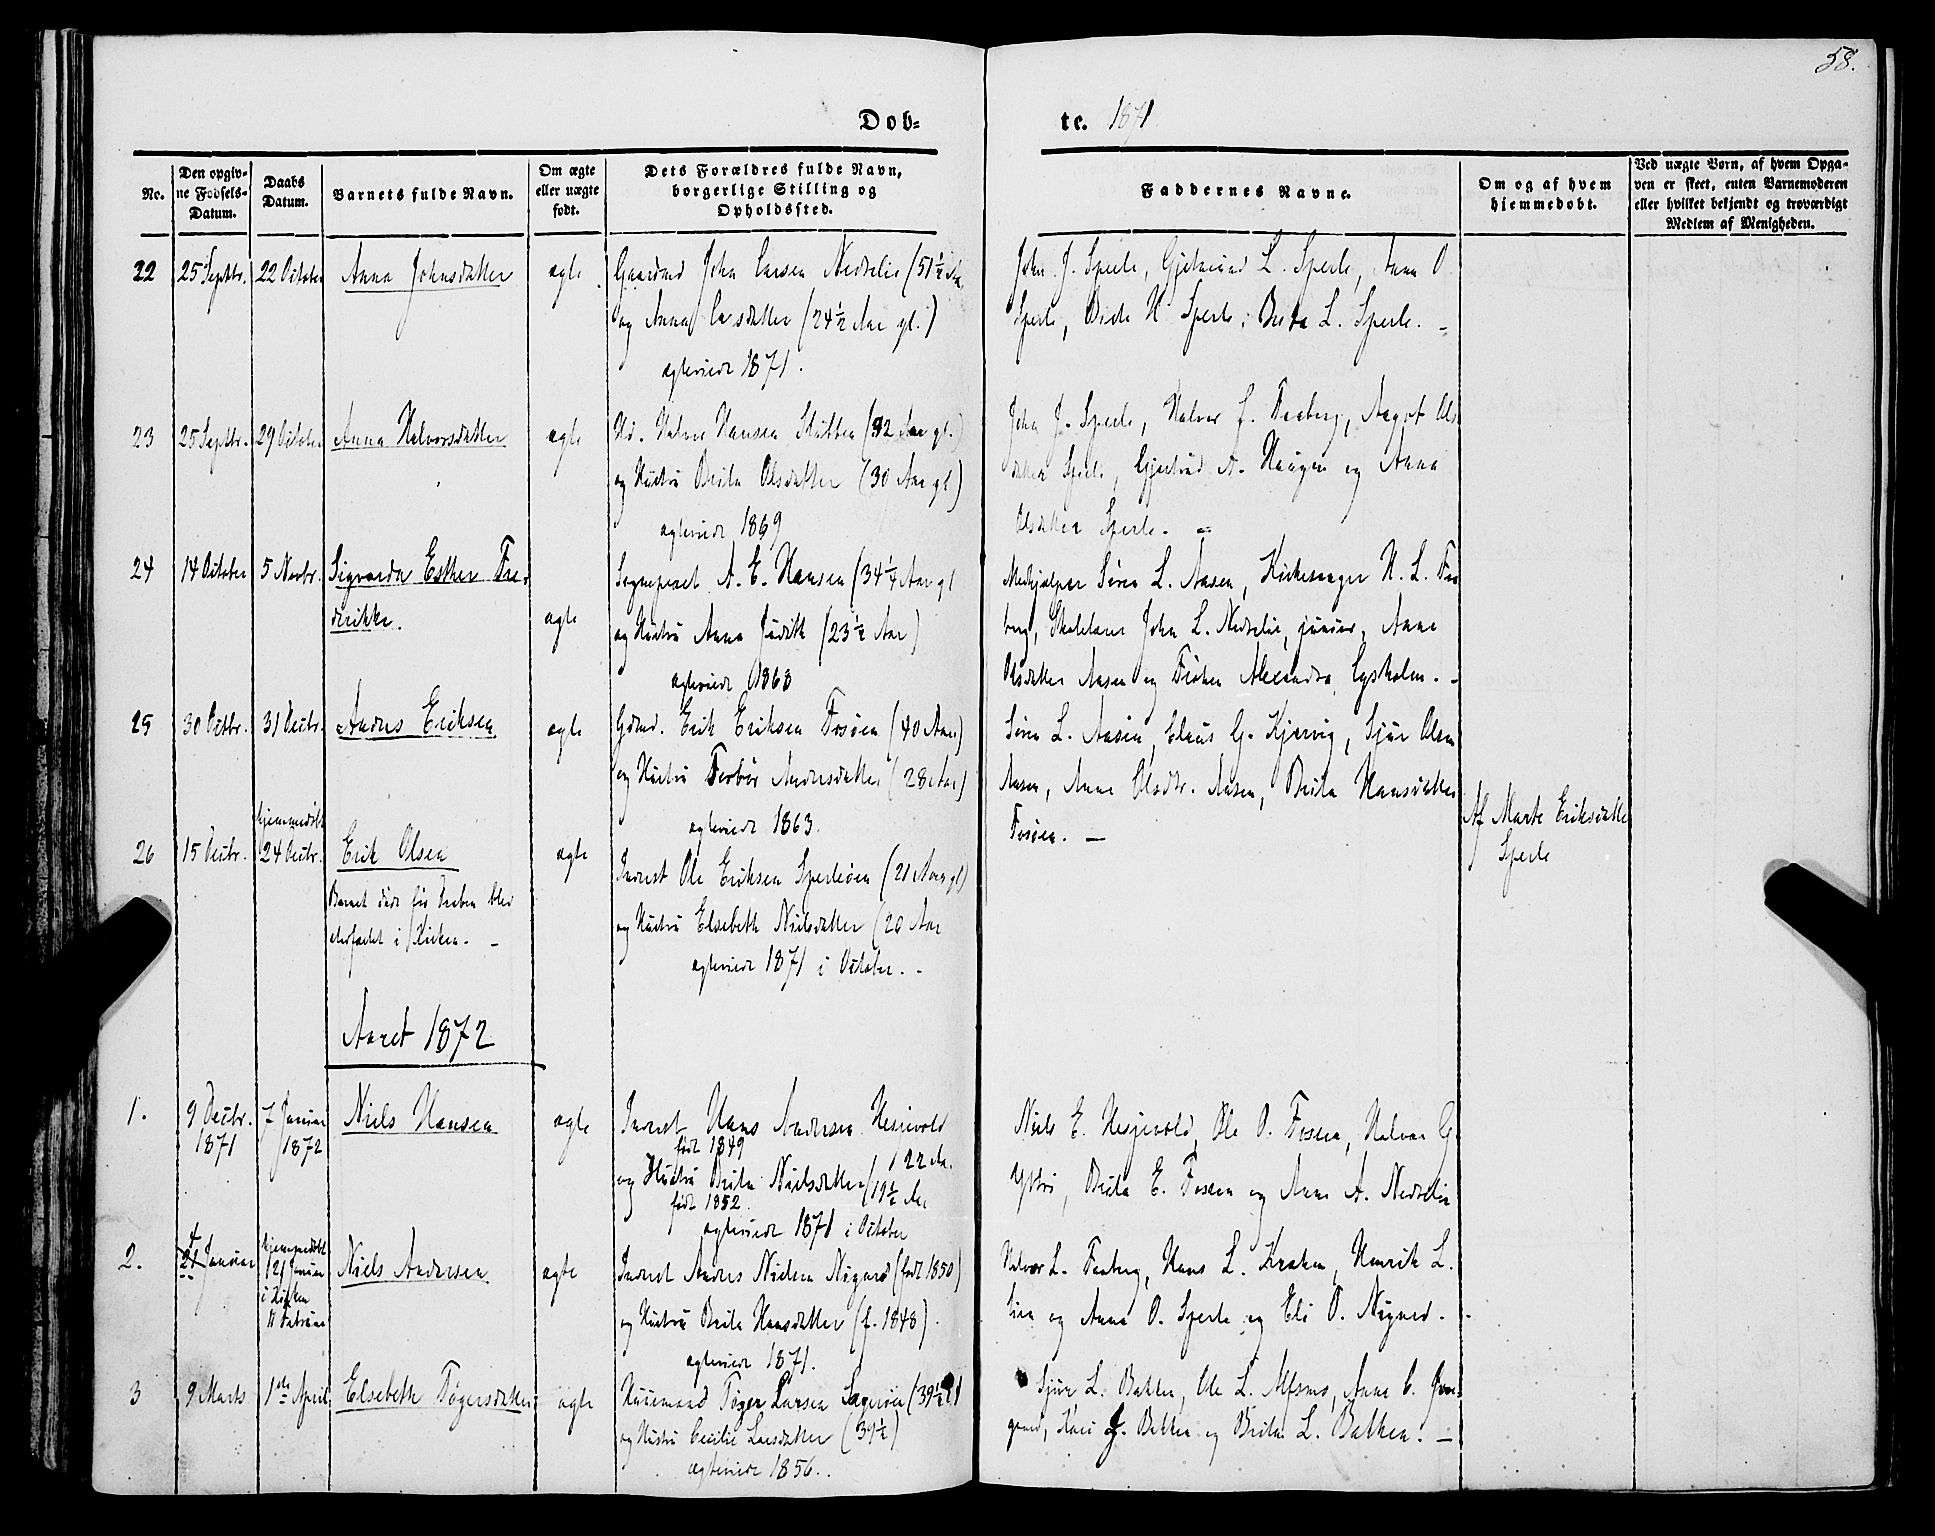 58.
Dob=
te. 1871
No.
Den opgiv-
ne Fødsels-
Datum.
Daabs
Datum.
Barnets fulde Navn.
Om ægte
eller uægte
født.
Dets Forældres fulde Navn,
borgerlige Stilling og
Opholdssted.
Faddernes Navne.
Om og af hvem
hjemmedøbt.
Ved uægte Børn, af hvem Opga-
ven er skeet, enten Barnemoderen
eller hvilket bekjendt og troværdigt
Medlem af Menigheden.
22
25 Septbr.
22 October
Anna Johnsdatter
ægte
Gaardmd John Larsen Nedrelie (51½ Aar
og Anna Larsdatter (24½ Aar gl.)
ægteviede 1871.
John J. Sperle, Gjertrud L. Sperle, Anna O.
Sperle, Brite H. Sperle, Brita L. Sperle. -
23
25 Septbr.
29 October
Anna Halvorsdatter
ægte
Halvor Hansen (32 Aar gl.)
og Hustru Brita Olsdatter (30 Aar gl)
ægteviede 1869
John J. Sperle, Halvor J. Faaberg, Aagot Ols
datter Sperle, Gjertrud A. Haugen og Anna
Olsdatter Sperle. -
24
14 October
5 Novbr.
Sigvarda Esther Fre-
derikke.
ægte
Sognepræst A. E. Hansen (34¼ Aar gl
og Hustru Anna Judith (23½ Aar)
ægteviede 1868
Medhjælper Søren L. Aasen, Kirkesanger H. L. Faa
berg, Skolelærer John L. Nedrelie, junior, Anne
Olsdatter Aasen og Frøken Alexandra Lysholm. -
25
30 Octbr.
31 Decbr.
Anders Eriksen
ægte
Gdmd. Erik Eriksen Fosøen (40 Aar)
og Hustru Torbør Andersdatter (28 Aar)
ægteviede 1863.
Søren L. Aasen, Claus G. Kjervig, Sjur Olsen
Aasen, Anne Olsdtr. Aasen, Brita Hansdatter
Fosøen. -
26
15 Decbr.
hjemmedøbt
24 Decbr.
Erik Olsen
Barnet døde før Daaben blev
stadfæstet i Kirken. -
ægte
Inderst Ole Eriksen Sperleøen (21 Aar gl)
og Hustru Elsebeth Nielsdatter (20 Aar
ægteviede 1871 i October. -
Af Marte Eriksdatter
Sperle
Aaret 1872
1.
9 Decbr.
1871
7 Januar
1872
Niels Hansen
ægte
Inderst Hans Andersen Hesjevold
født 1849
22 Aar
og Hustru Brita Nielsdatter (19½ Aar
født 1852.
ægteviede 1871 i October
Niels E. Hesjevold, Ole O. Fosøen, Halvor G.
Yttri, Brita E. Fosøen og Anne A. Nedrelie
2.
4
21 Januar
Hjemmedøbt
21 Januar
i Kirken
11 Februar
Niels Andersen
ægte
Inderst Anders Nielsen Nigard (født 1850)
og Hustru Brita Hansdatter (f. 1848).
ægteviede 1871.
Halvor L. Faaberg, Hans L. Kraken, Henrik L.
Lien og Anna O. Sperle og Eli O. Nigard. -
3
9 Marts
1ste April
Elsebeth Tøgersdatter
ægte
Huusmand Tøger Larsen (39½ gl
og Hustru Cecilie Larsdatter (39½)
ægteviede 1856.
Sjur L. Bakken, Ole L. Alfsmo, Anne C.
Kari J. Bakken og Brita L. Bakken. -